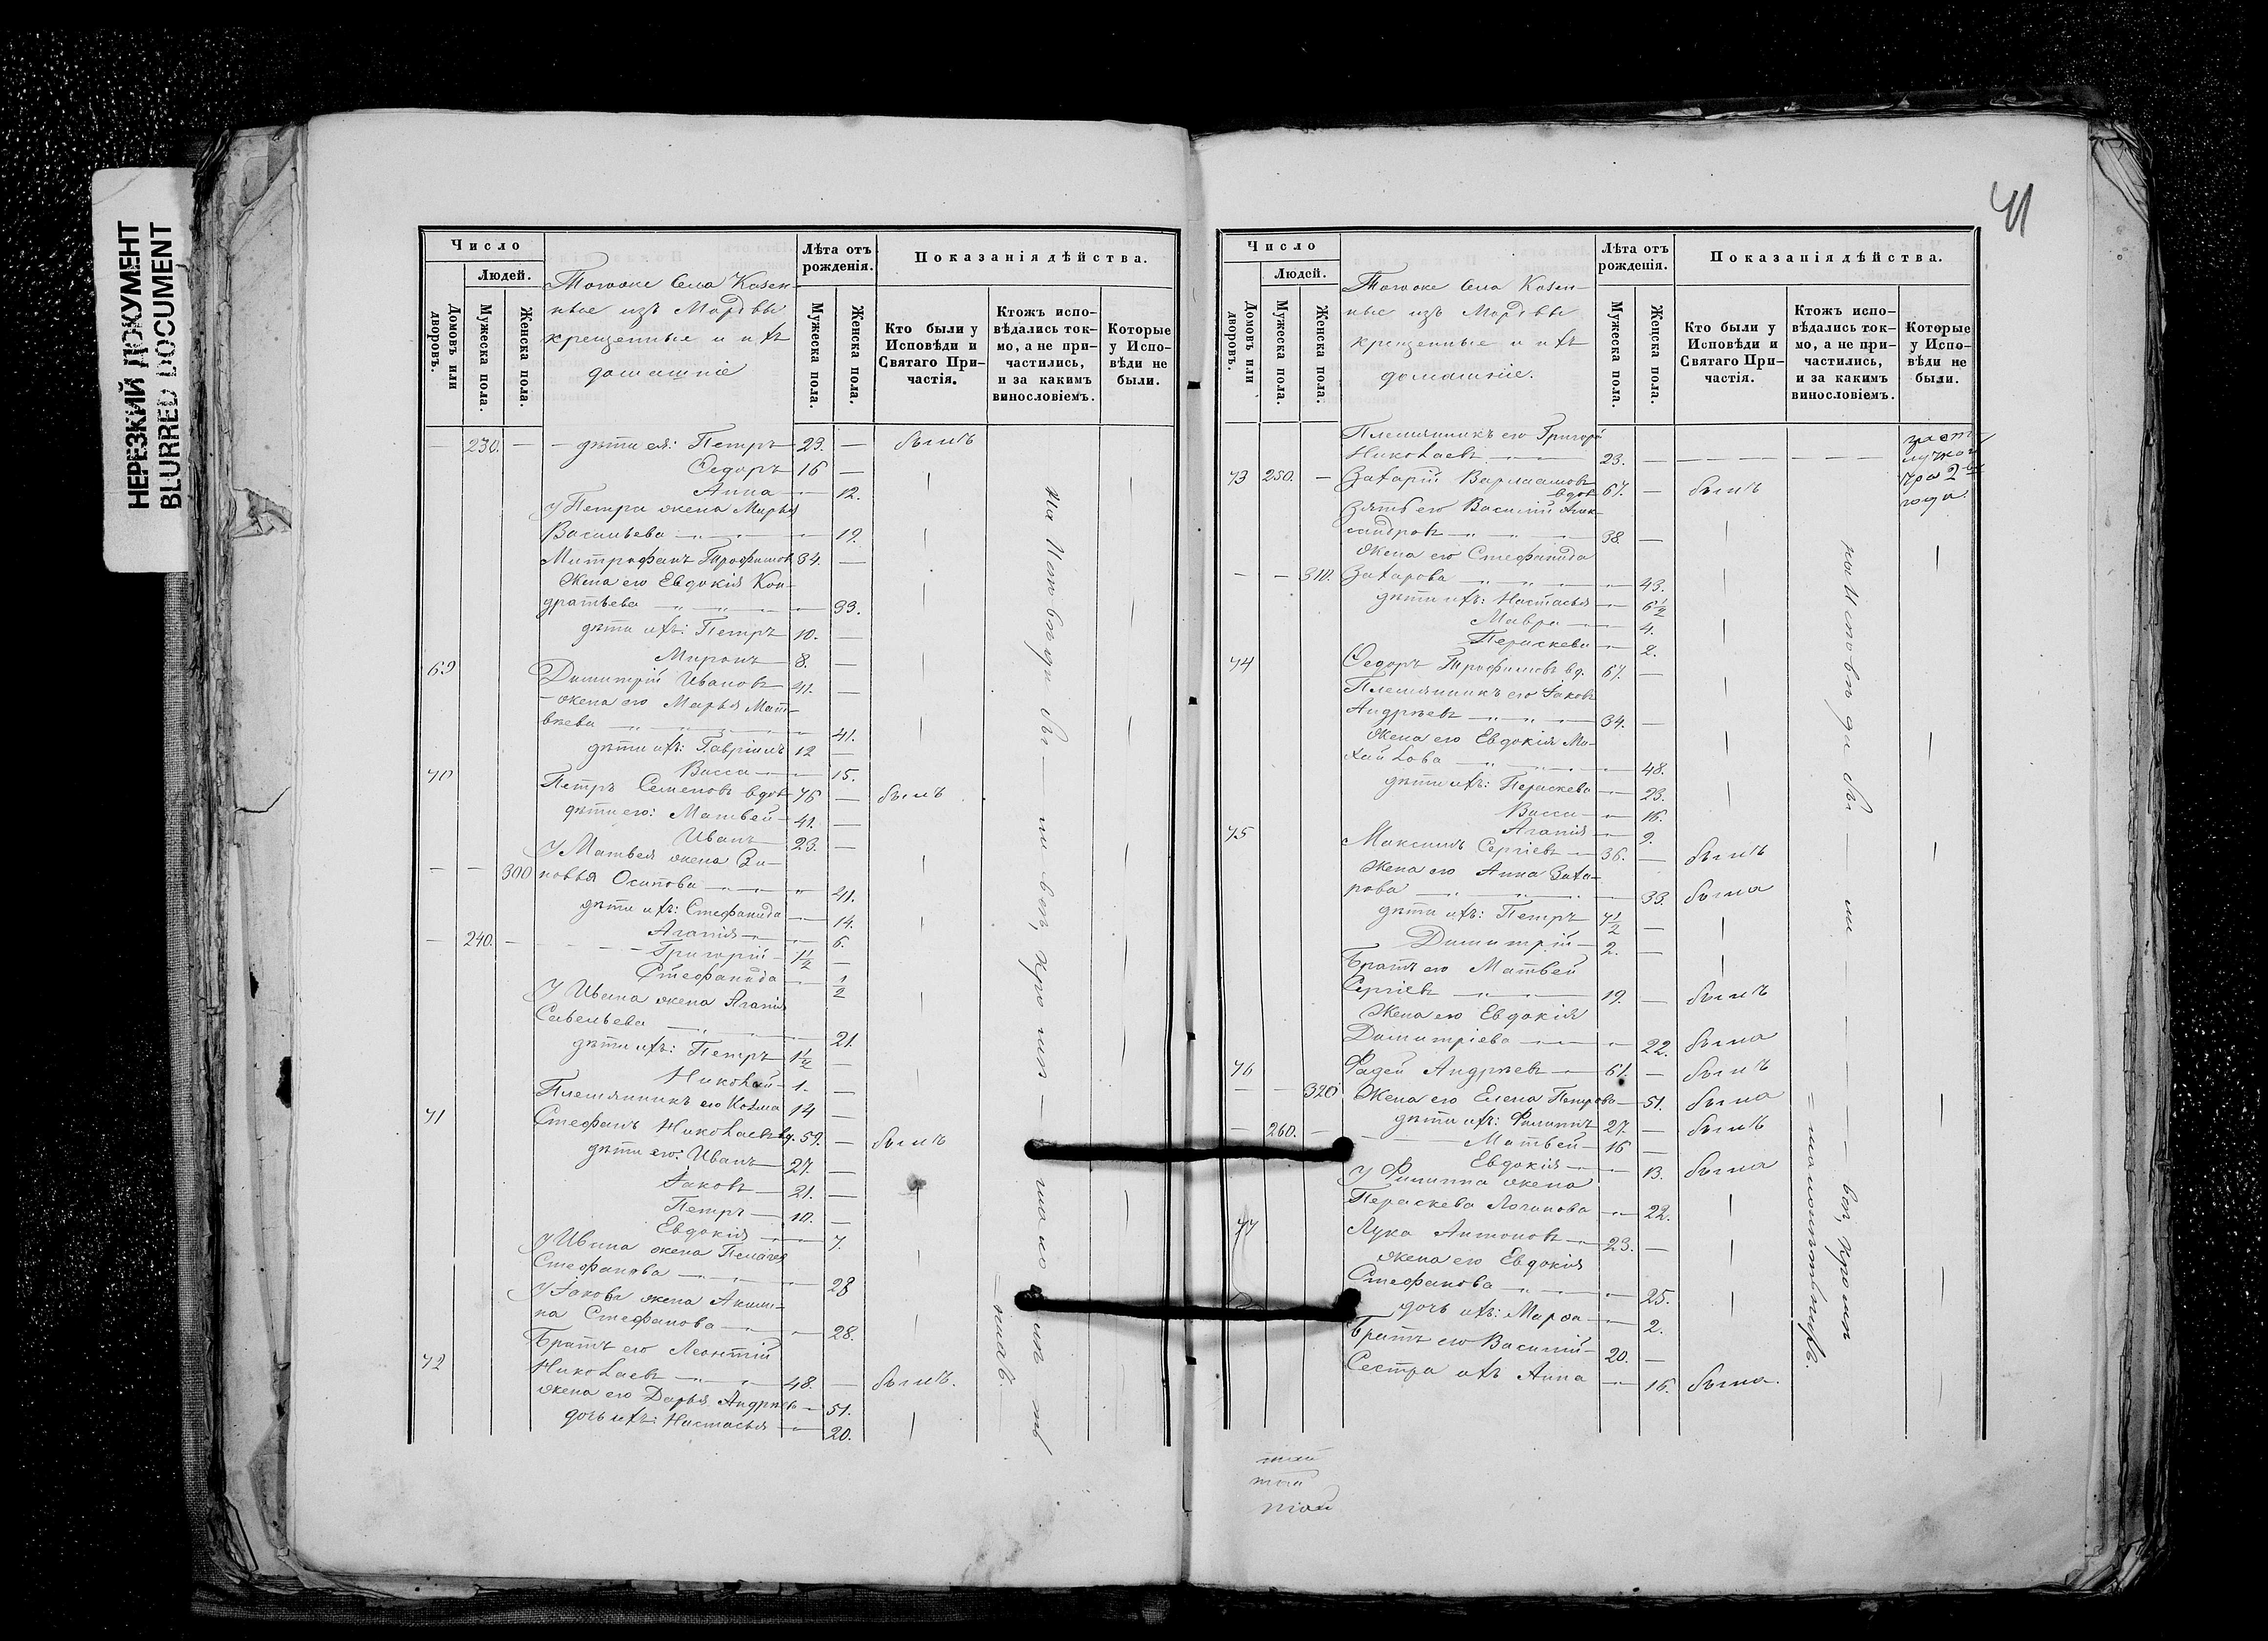 НЕРЕЗКИЙ ДОКУМЕНТ
BLURRED DOCUMENT
41
Число
Людей.
Домовъ или дворовъ.
Мужеска пола.
Женска пола.
Тогоже села Казен-
ные изъ Мордвы
крещенные и ихъ
домашніе
Лѣта отъ рожденія.
Мужеска пола.
Женска пола.
Показанія дѣйства.
Кто были у Исповѣди и Святаго Причастія.
Ктожъ исповѣдались токмо, а не причастились, и за какимъ винословіемъ.
Которые у Исповѣди не были.
— 230. — — дѣти ея: Петръ 23. — былъ
Ѳедоръ 16 —
Анна — 12.
У Петра жена Марья
Васильева — 19.
Митрофанъ Трофимовъ 34. —
Жена его Евдокія Кон-
дратьева — 33.
дѣти ихъ: Петръ 10. —
Миронъ 8. —
69 Димитрій Ивановъ 41. —
жена его Марья Мат-
вѣева — 41.
дѣти ихъ: Гавріилъ 12 —
Васса — 15.
70 Петръ Семеновъ вдов 76 — былъ
дѣти его: Матвей 41. —
Иванъ 23. —
У Матвея жена Зи-
— — 300 новья Осипова — 41.
дѣти ихъ: Стефанида — 14.
Агапія — 6.
— 240. — Григорій 1½ —
Стефанида — ½
У Ивана жена Агапія
Савельева — 21.
дѣти ихъ: Петръ 1½ —
Николай 1. —
Племянникъ его Козма 14 —
71 Стефанъ Николаевъ вд. 59. — былъ
дѣти его: Иванъ 27. —
Іаковъ 21. —
Петръ 10. —
Евдокія — 7.
У Ивана жена Пелагея
Стефанова — 28
У Іакова жена Акили-
на Стефанова — 28.
Братъ его Леонтій
72 Николаевъ 48. — былъ.
жена его Дарья Андрѣев — 51.
дочь ихъ: Настасья — 20.
Число
Людей.
Домовъ или дворовъ.
Мужеска пола.
Женска пола.
Тогоже села Казен-
ные изъ Мордвы
крещенные и ихъ
домашніе.
Лѣта отъ рожденія.
Мужеска пола.
Женска пола.
Показанія дѣйства.
Кто были у Исповѣди и Святаго Причастія.
Ктожъ исповѣдались токмо, а не причастились, и за какимъ винословіемъ.
Которые у Исповѣди не были.
Племянникъ его Григорій
Николаевъ 23. —
73 250. — Захарій Варлаамовъ
вдов 67. — былъ
Зять его Василій Алек-
сандровъ 38. —
Жена его Стефанида
— — 310. Захарова — 43.
дѣти ихъ: Настасья — 6½
Мавра — 4.
Параскева — 2.
74 Ѳедоръ Трофимовъ вд. 67. —
Племянникъ его Іаковъ
Андрѣевъ 34. —
Жена его Евдокія Ми-
хайлова — 48.
дѣти ихъ: Параскева — 23.
Васса — 16.
Агапія — 9.
75 Максимъ Сергіевъ 36. — былъ
Жена его Анна Заха-
рова — 33. была
дѣти ихъ: Петръ 7½ —
Димитрій 2. —
Братъ его Матвей
Сергіевъ 19. — былъ
Жена его Евдокія
Димитріева — 22. была
76 Фадей Андрѣевъ 61. — былъ
— — 320 Жена его Елена Петрова — 51. была
— 260. — дѣти ихъ: Филиппъ 27. — былъ
Матвей 16 —
Евдокія — 13. была
У Филиппа жена
Параскева Логинова — 22.
77 Лука Антоновъ 23. —
жена его Евдокія
Стефанова — 25.
дочь ихъ: Марѳа — 2.
Братъ его Василій 20. —
Сестра ихъ Анна — 16. была.